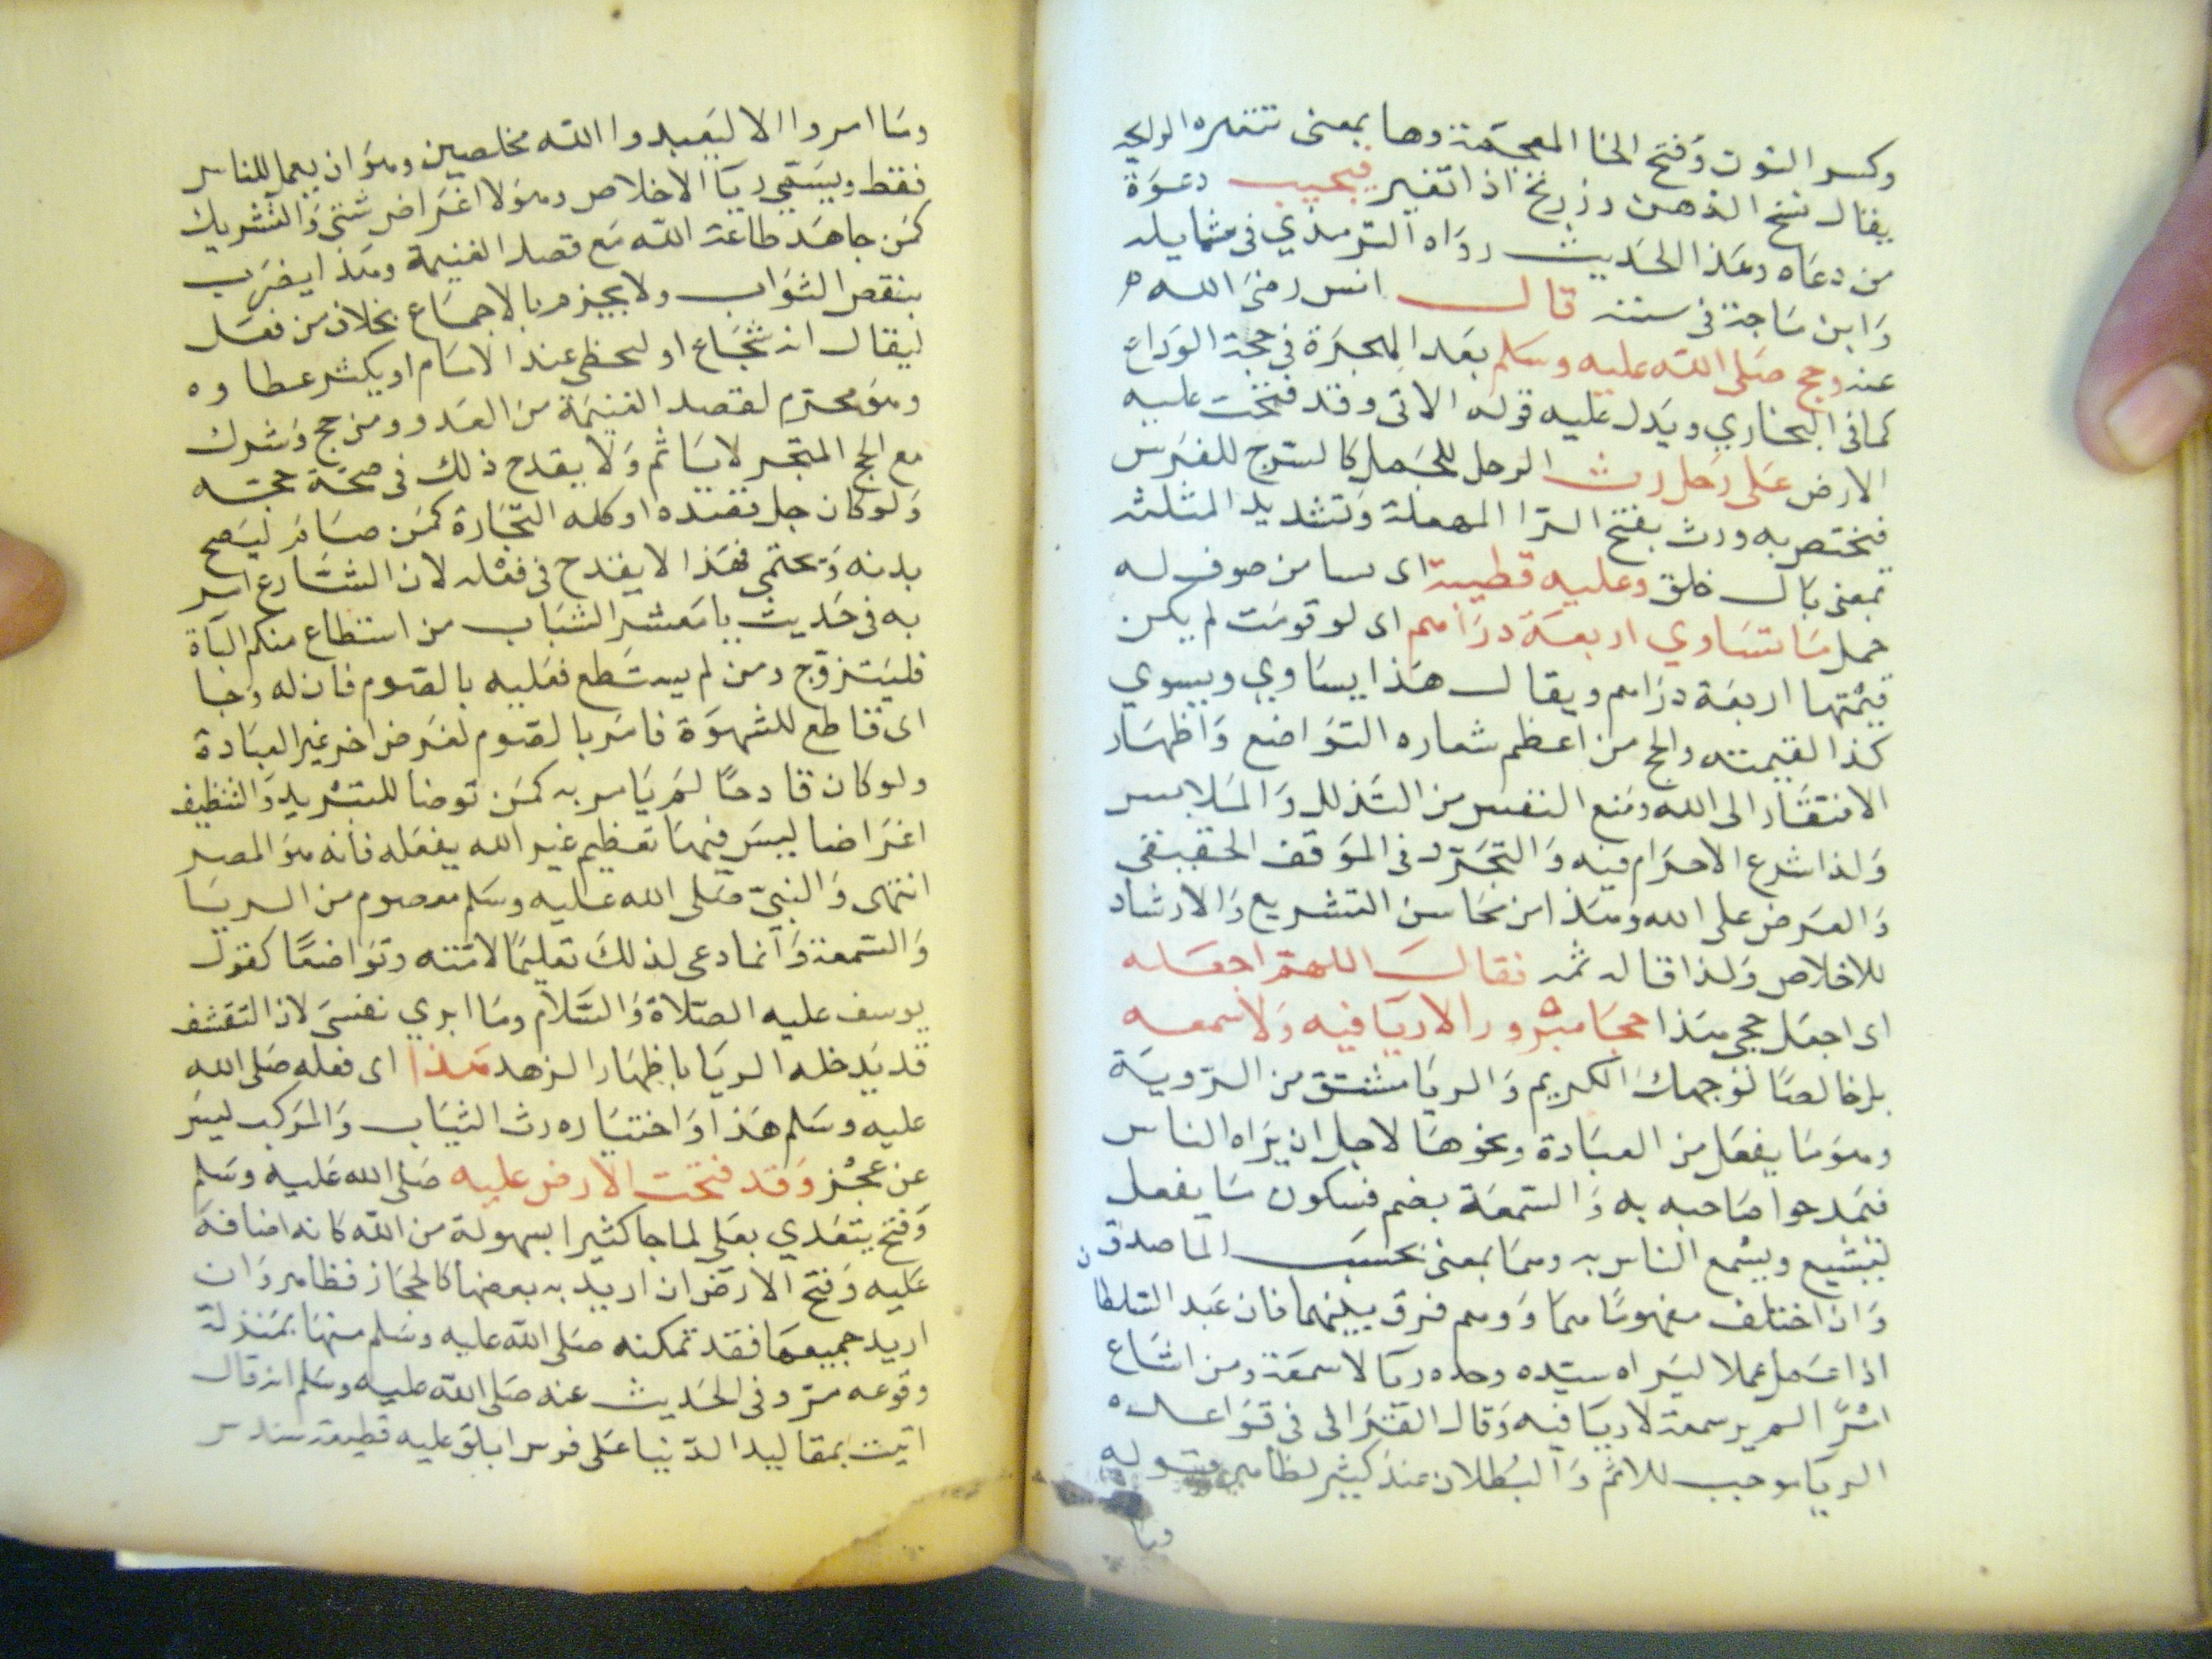 وكسر النون وفتح الخا المعجمة وها بمعنى تتغيره الرايحه
يقال سنخ الذهن وزنخ اذا تغير فيجيب دعوة
من دعاه وهذا الحديث رواه الترمذي في شمايله
وابن ماجة في سننه قال انس رضى الله
عنه وحج صلى الله عليه وسلم بعد الهجرة في حجة الوداع
كما في البخاري ويدل عليه قوله الاتى وقد فتحت عليه
الارض على رحل رث الرحل للجمل كالسرج للفرس
فيختص به ورث بفتح الرا المهملة وتشديد المثلثه
بمعنى بال خلق وعليه قطيفة اى كسا من صوف له
خمل ما تساوي اربعة دراهم اى لو قومت لم يكن
قيمتها اربعة دراهم ويقال هذا يساوي ويسوي
كذا لقيمته والحج من اعظم شعاره التواضع واظهار
الافتقار الى الله ومنع النفس من التذلل والملابس
ولذا شرع الاحرام فيه والتجرد في الموقف الحقيقي
والعرض على الله وهذا من محاسن التشريع والارشاد
للاخلاص ولذا قاله ثمه فقال اللهم اجعله
اى اجعل حجى هذا حجا مبرورا لا ريا فيه ولا سمعه
بل خالصا لوجهك الكريم والريا مشتق من الروية
وهو ما يفعل من العبادة ونحوها لاجل ان يراه الناس
فيمدحوا صاحبه به والسمعة بضم فسكون ما يفعل
ليشيع ويسمع الناس به وهما بمعنى بحسب الماصدق
وان اختلف مفهوما هما ووهم فرق بينهما فان عبد السلطا ن
اذا عمل عملا ليراه سيده وحده ريا لا سمعة ومن اشاع
امرا لم ير سمعة لا ريا فيه وقال القرافى فى قواعده
الريا موجب للاثم والبطلان عند كثير لظاهر قوله
وما
وما امروا الا ليعبدوا الله مخلصين وهو ان يعمل للناس
فقط ويسمى ريا الاخلاص وهو لا اغراض شتى والتشريك
كمن جاهد طاعة الله مع قصد الغنيمة وهذا يضرب
بنقص الثواب ولا يحرم بالاجماع بخلاف من فعل
ليقال انه شجاع او ليحظى عند الامام او يكثر عطاوه
وهو محرم لقصد الغنيمة من العدو ومن حج وشرك
مع الحج المتجر لا ياثم ولا يقدح ذلك في صحة حجته
ولو كان جل قصده او كله التجارة كمن صام ليصح
بدنه ويحتمى فهذا لا يقدح في فعله لان الشارع امر
به في حديث يا معشر الشباب من استطاع منكم الباة
فليتزوج ومن لم يستطع فعليه بالصوم فان له وجا
اى قاطع للشهوة فامر بالصوم لغرض اخر غير العبادة
ولو كان قادحا لم يامر به كمن توضا للتبريد والتنظيف
اغراضا ليس فيها تعظيم غير الله يفعله فانه هو المضر
انتهى والنبى صلى الله عليه وسلم معصوم من الريا
والسمعة وانما دعى لذلك تعليما لامته وتواضعا كقول
يوسف عليه الصلاة والسلام وما ابري نفسى لان التقشف
قد يدخله الريا باظهار الزهد هذا اى فعله صلى الله
عليه وسلم هذا واختياره رث الثياب والمركب ليس
عن عجز وقد فتحت الارض عليه صلى الله عليه وسلم
وفتح يتعدي بعلى لما جا كثيرا بسهولة من الله كانه اضافه
عليه وفتح الارض ان اريد به بعضها كالحجاز فظاهر وان
اريد جميعها فقد تمكنه صلى الله عليه وسلم منها بمنزلة
وقوعه مر وفى الحديث عنه صلى الله عليه وسلم انه قال
اتيت بمقاليد الدنيا على فرس ابلق عليه قطيفة سندس